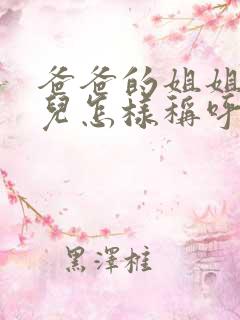 爸爸的姐姐
兒怎樣稱呼
黑澤柱